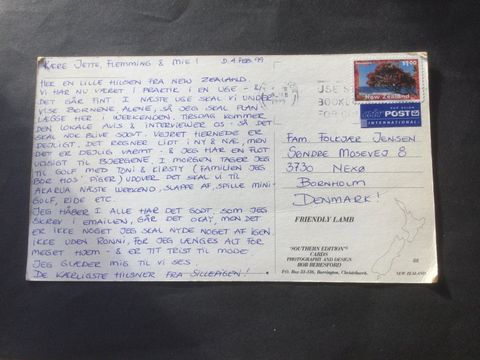 KÆRE JETTE, FLEMMING & MIE! D. 4 FEB. 99
HER EN LILLE HILSEN FRA NEW ZEALAND.
VI HAR NU VÆRET I PRAKTIK I EN UGE - &
DET GÅR FINT. I NÆSTE UGE SKAL VI UNDER-
VISE BØRNENE ALENE, SÅ JEG SKAL PLAN-
LÆGGE HER I WEEKENDEN. TIRSDAG KOMMER
DEN LOKALE AVIS & INTERVIEWER OS - SÅ DET
SKAL NOK BLIVE GODT. VEJRET HERNEDE ER
DEJLIGT. DET REGNER LIDT I NY & NÆ, MEN
DET ER DEJLIG VARMT - & JEG HAR EN FLOT
UDSIGT TIL BJERGENE. I MORGEN TAGER JEG
TIL GOLF MED TONI & KIRSTY (FAMILIEN JEG
BOR HOS' PIGER) UDOVER DET SKAL VI TIL
AKAROA NÆSTE WEEKEND, SLAPPE AF, SPILLE MINI-
GOLF, RIDE ETC.
JEG HÅBER I ALLE HAR DET GODT, SOM JEG
SKREV I EMAILEN, GÅR DET OKAY, MEN DET
ER IKKE NOGET JEG SKAL NYDE NOGET AF IGEN.
IKKE UDEN RONNI, FOR JEG LÆNGES ALT FOR
MEGET HJEM - & ER TIT TRIST TIL MODE.
JEG GLÆDER MIG TIL VI SES.
DE KÆRLIGSTE HILSNER FRA
$1.00
New Zealand
USE
BOOKL
FOR
POST
INTERNATIONAL
FAM. FOLKJÆR JENSEN
SØNDRE MOSEVEJ 8
3730 NEXØ
BORNHOLM
DENMARK!
FRIENDLY LAMB
"SOUTHERN EDITION"©
CARDS
PHOTOGRAPHY AND DESIGN
BOB BERESFORD
P.O. Box 33-136, Barrington, Christchurch.
NEW ZEALAND